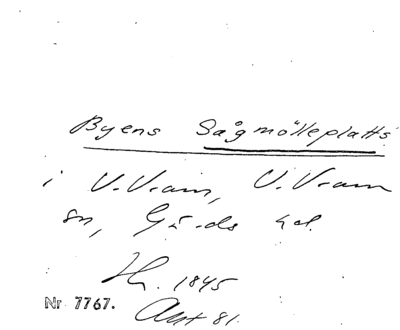 Byens Sågmölleplatts
i V. Vram, V. Vram
sn, Gärds hd.
Hg. 1845
Nr 7767. Akt 81.